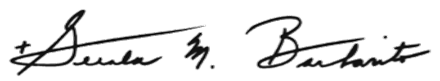 +Gerald M. Barbarito